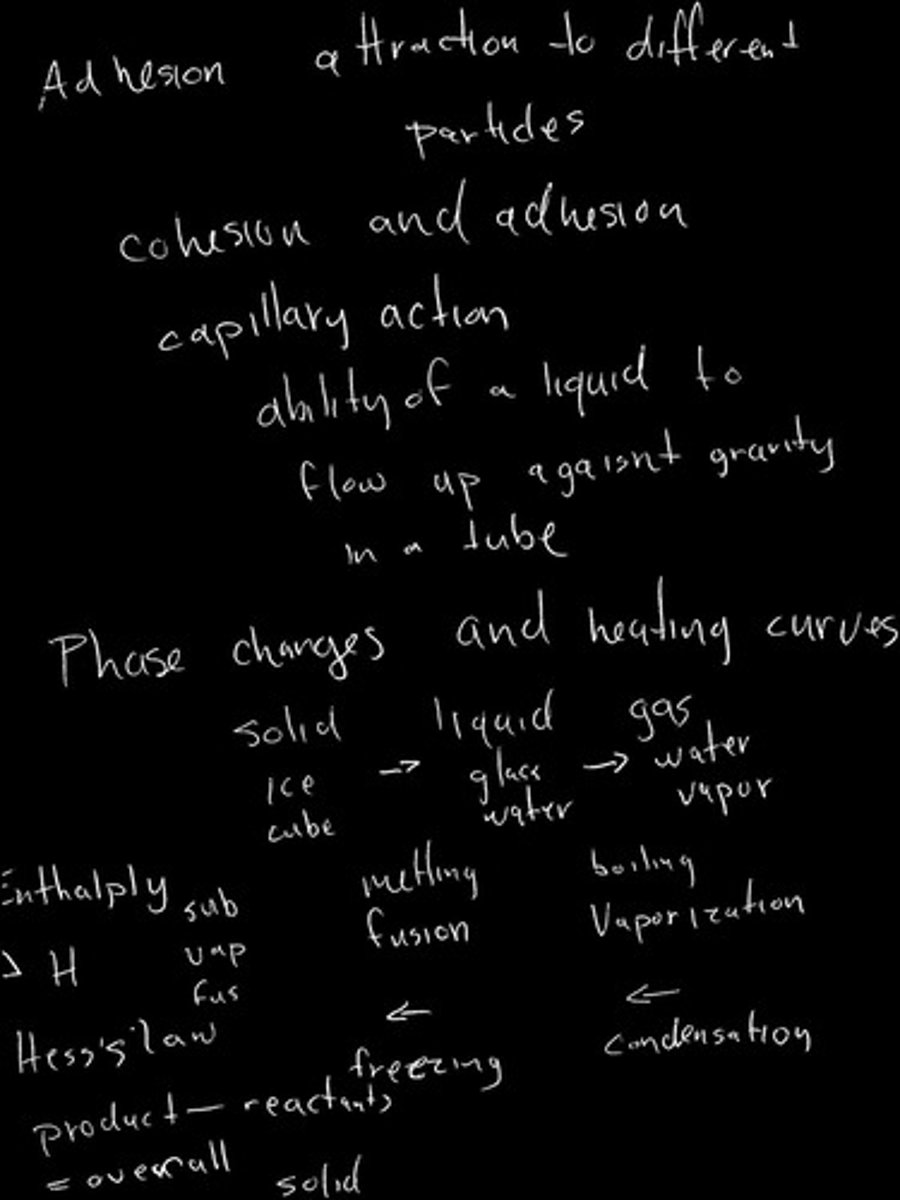 Adhesion attraction to different
particles
cohesion and adhesion
capillary action
ability of a liquid to
flow up agaisnt gravity
in a tube
Phase changes and heating curves
solid liquid gas
ice → glass → water
cube water vapor
Enthalply sub melting boiling
Δ H vap fusion Vaporization
fus ← ←
Hess's law freezing condensation
product — reactants
= overall solid